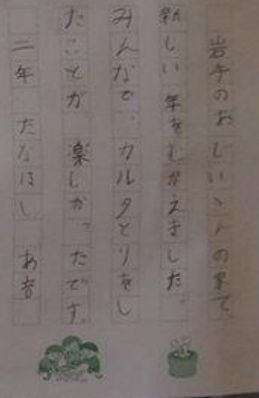 岩手のおじいさんの家で、
新しい年をむかえました。
みんなで、カルタとりをし
たことが楽しかったです。
二年 たなはし あき